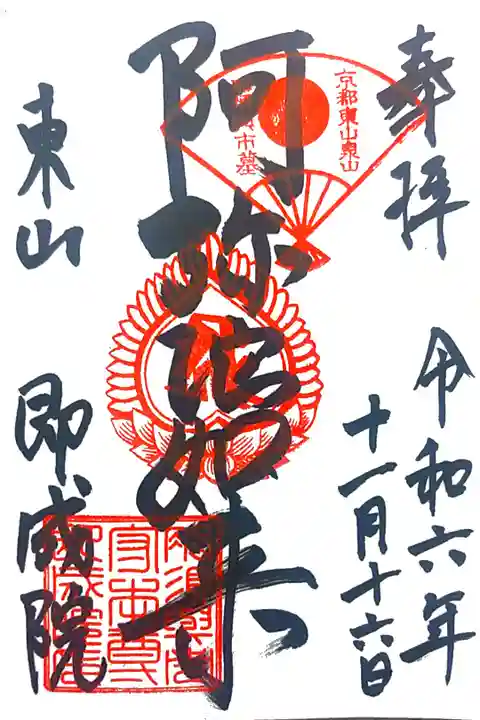 奉拝
令和六年
十一月十六日
京都東山泉山
市墓
阿弥陀如来
東山
即成院